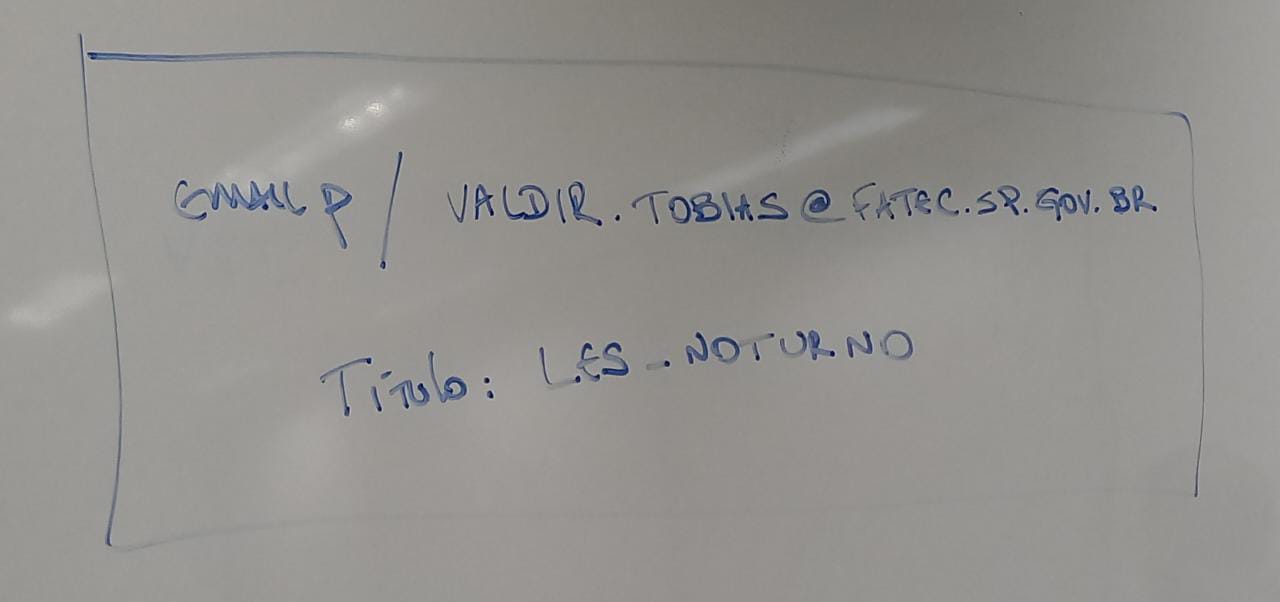 EMAIL P/ VALDIR.TOBIAS@FATEC.SP.GOV.BR
Título: LES_NOTURNO